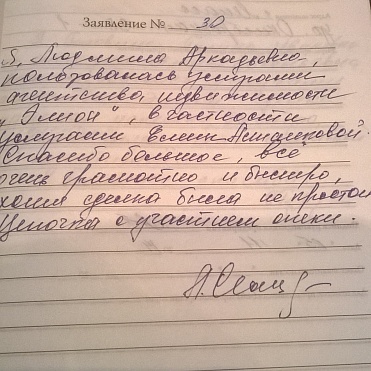 Заявление № 30
Я, Людмила Аркадьевна,
пользовалась услугами
агентства недвижимости
", в частности
услугами Елены
Спасибо большое, всё
очень грамотно и быстро,
хотя сделка была не простой
Цепочка с участием опеки.